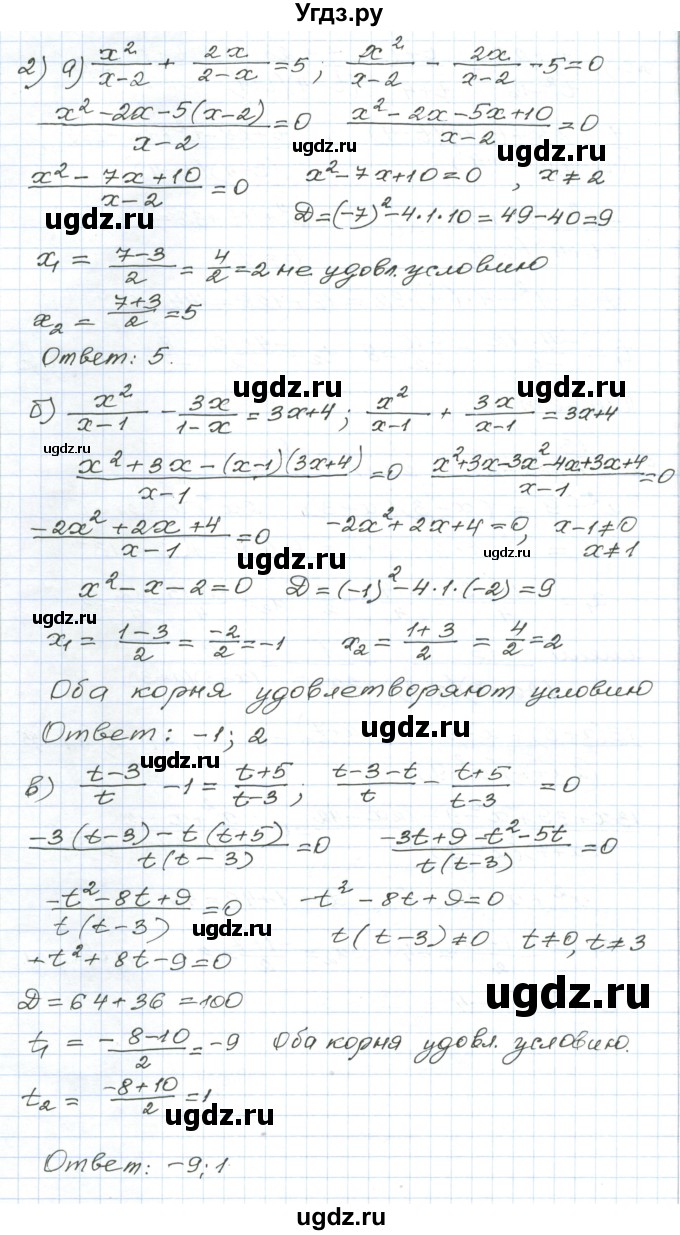 Угдз.ру
2) а) x²/(x-2) + 2x/(2-x) = 5; x²/(x-2) - 2x/(x-2) - 5 = 0
(x²-2x-5(x-2))/(x-2) = 0 (x²-2x-5x+10)/(x-2) = 0
ugdz.ru ugdz.ru
(x²-7x+10)/(x-2) = 0 x²-7x+10=0 , x≠2
ugdz.ru
D=(-7)²-4·1·10=49-40=9
x₁ = (7-3)/2 = 4/2 = 2 не удовл. условию
x₂ = (7+3)/2 = 5
Ответ: 5.
ugdz.ru
б) x²/(x-1) - 3x/(1-x) = 3x+4; x²/(x-1) + 3x/(x-1) = 3x+4
ugdz.ru
(x²+3x-(x-1)(3x+4))/(x-1) = 0 (x²+3x-3x²-4x+3x+4)/(x-1) = 0
(-2x²+2x+4)/(x-1) = 0 -2x²+2x+4=0, x-1≠0
ugdz.ru ugdz.ru x≠1
x²-x-2=0 D=(-1)²-4·1·(-2)=9
ugdz.ru
x₁ = (1-3)/2 = -2/2 = -1 x₂ = (1+3)/2 = 4/2 = 2
Оба корня удовлетворяют условию
Ответ: -1; 2
ugdz.ru
ugdz.ru
в) (t-3)/t - 1 = (t+5)/(t-3); (t-3-t)/t - (t+5)/(t-3) = 0
(-3(t-3)-t(t+5))/(t(t-3)) = 0 (-3t+9-t²-5t)/(t(t-3)) = 0
(-t²-8t+9)/(t(t-3)) = 0 -t²-8t+9=0
ugdz.ru
t(t-3)≠0 t≠0, t≠3
+t²+8t-9=0
ugdz.ru
D=64+36=100
t₁ = (-8-10)/2 = -9 Оба корня удовл. условию.
t₂ = (-8+10)/2 = 1
ugdz.ru
Ответ: -9; 1
ugdz.ru